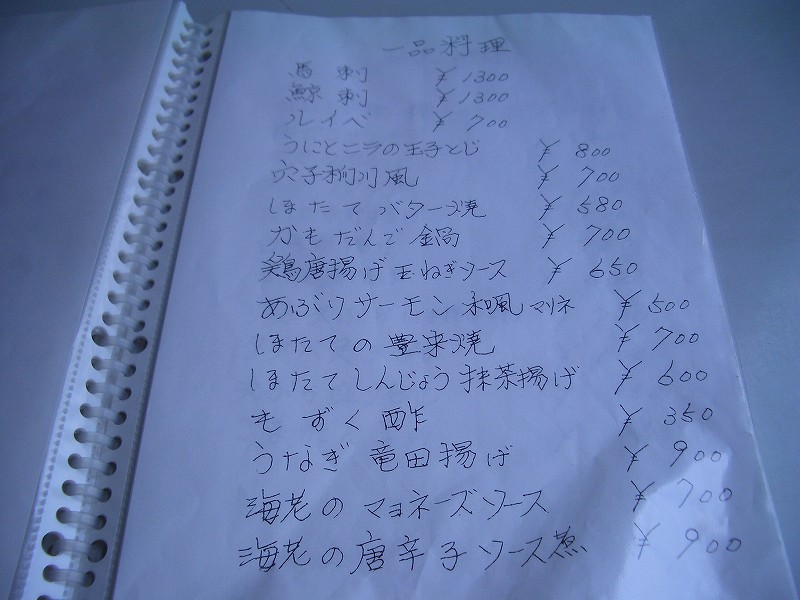 一品料理
馬刺 ¥1300
鯨刺 ¥1300
ルイベ ¥700
うにとニラの玉子とじ ¥800
穴子柳川風 ¥700
ほたてバター焼 ¥580
かもだんご鍋 ¥700
鶏唐揚げ玉ねぎソース ¥650
あぶりサーモン和風マリネ ¥500
ほたての豊来焼 ¥700
ほたてしんじょう抹茶揚げ ¥600
もずく酢 ¥350
うなぎ竜田揚げ ¥900
海老のマヨネーズソース ¥700
海老の唐辛子ソース煮 ¥900